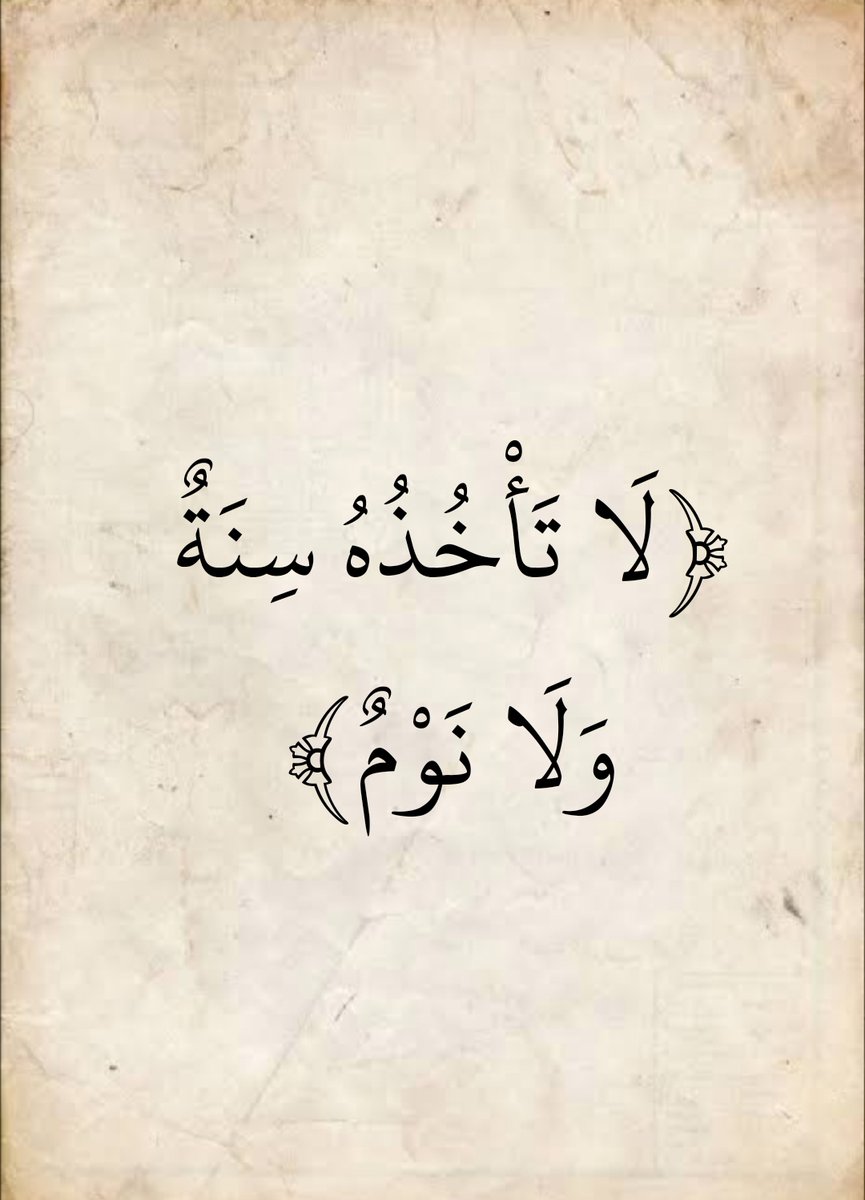 ﴿لَا تَأْخُذُهُ سِنَةٌ
وَلَا نَوْمٌ﴾